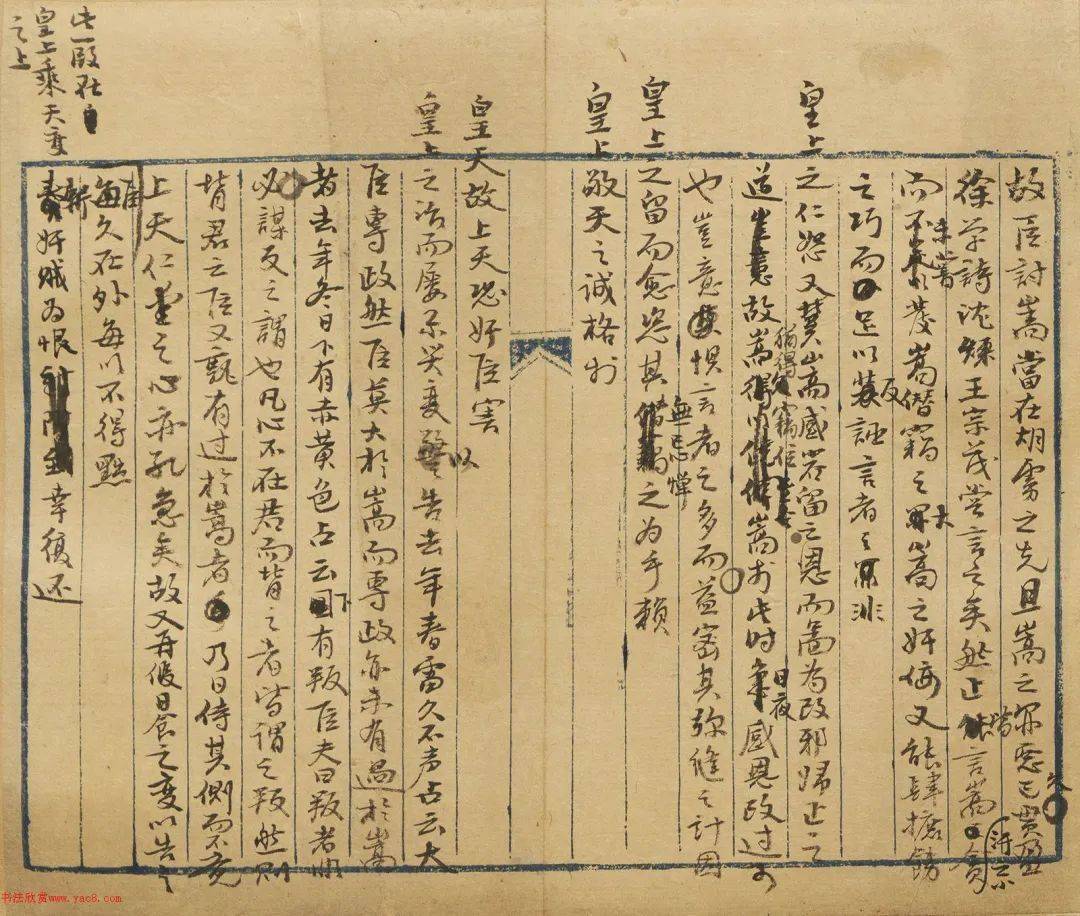 故臣討嵩當在胡虜之先且嵩之罪惡皆已貫盈久
徐學詩沈鍊王宗茂等言之矣然止皆言嵩貪汙小
而未嘗發嵩僭竊之大嵩之奸佞又能肆摭飾
之巧而足以反誣言者之非
皇上之仁恕又冀嵩感容留之恩而圖為改邪歸正之
道故嵩猶得竊位至今嵩於此時日夜感恩改過可
也豈意懼言者之多而益密其彌縫之計因
皇上之留而愈恣其無忌憚之為乎賴
皇上敬天之誠格於
皇天故上天恐奸臣害
皇上之治而屢示災變以警告去年春雷久不聲占云大
臣專政然臣莫大於嵩而專政亦未有過於嵩
者去年冬日下有赤黃色占云下有叛臣夫曰叛者非
必謀反之謂也凡心不在君而背之者皆謂之叛然則
背君之臣又孰有過於嵩者乃日侍其側而不覺
上天仁愛之心亦孔急矣故又再假日食之變以告之
臣每久在外每以不得
斬奸賊為恨幸復還
此一段在
皇上乘天變
之上
书法欣赏www.yac8.com